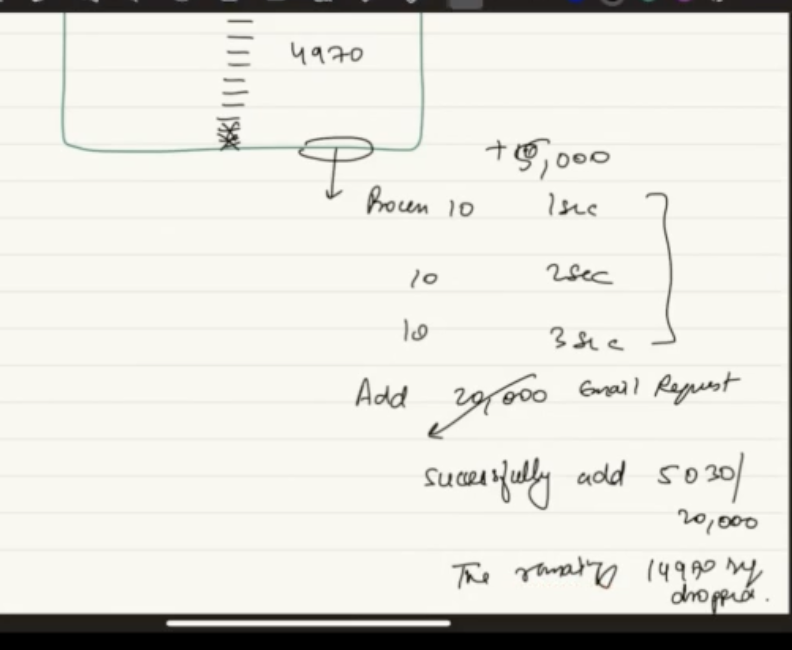 4970
+5,000
Process 10 1sec
10 2sec
10 3sec
Add 20,000 Email Request
successfully add 5030/
20,000
The remaining 14970 req
dropped.